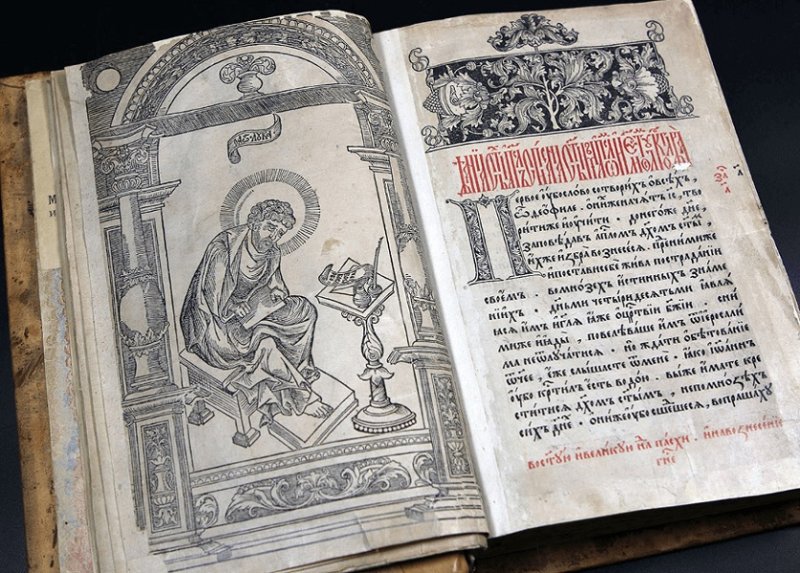 Первое ѹбо слово сотворихъ ѡ всѣхъ,
ѽ ѳеофиле. ѡ нихже начатъ іс҃, тво
рити же и ѹчити. до него же дн҃е,
заповѣдавъ апⷭ҇лом дх҃омъ ст҃ы,
ихже избра вознесесѧ. пред ними же
и постави себе жива по страданїи
своемъ. во мноѕѣхъ истинныхъ знаме
нїихъ. дн҃ьми четыридесѧтьми ꙗвлѧ
ѧсѧ имъ и гл҃ѧ ꙗже о црⷭ҇твїи бж҃їи. сни
ми же и ꙗды, повелѣваше имъ ѿ іерⷭ҇ли
ма не ѿлꙋчатисѧ. но ждати ѡбѣтованїе
ѿчее, єже слышасте ѿ мене. ꙗко іѡаннъ
ѹбо крⷭ҇тилъ єсть водою. вы же имате кре
ститисѧ дх҃омъ ст҃ымъ, не по мноѕѣхъ
сихъ дн҃ехъ. ѡни же ѹбо сшедшесѧ, вопрашахꙋ
во ст҃ꙋю и великꙋю нлⷧ҇ѧ пасхи. и на вознесенїе
гн҃е